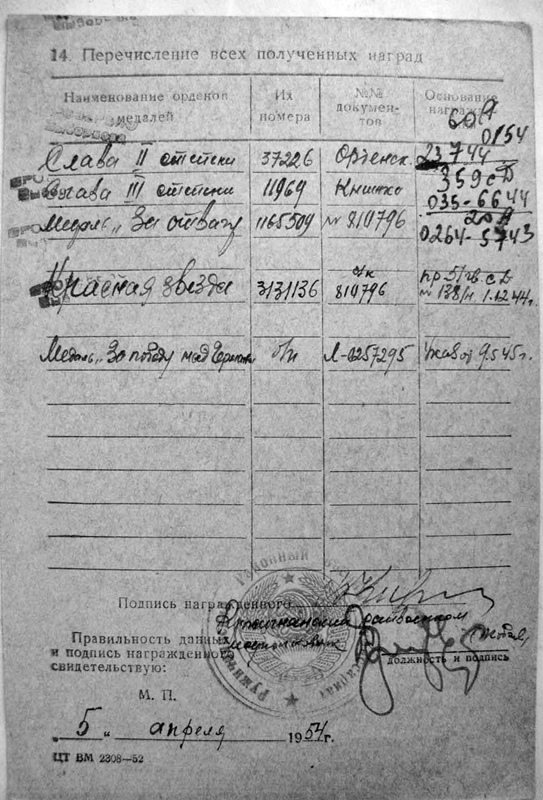 14. Перечисление всех полученных наград
Наименование орденов
медалей
Их
номера
№№
докумен-
тов
Основание
награж
60 А
0154
Слава II степени 37226 Орденск. 23744
359 сд
Слава III степени 11969 Книжка 035-6644
Медаль „За отвагу 1165509 № 810796 20 А
0264-5743
о/к пр 5/гв. с д
Красная звезда 3131136 810796 № 138/н 1.12 44г.
Медаль „За победу над Германи б/н Л-0257295 Указ от 9.5 45г.
Районный
Подпись награжденного
Ружинский райвоенком
Правильность данных
и подпись награжденного
свидетельствую:
должность и подпись
М. П.
„ 5 „ апреля 1954 г.
ЦТ ВМ 2308—52